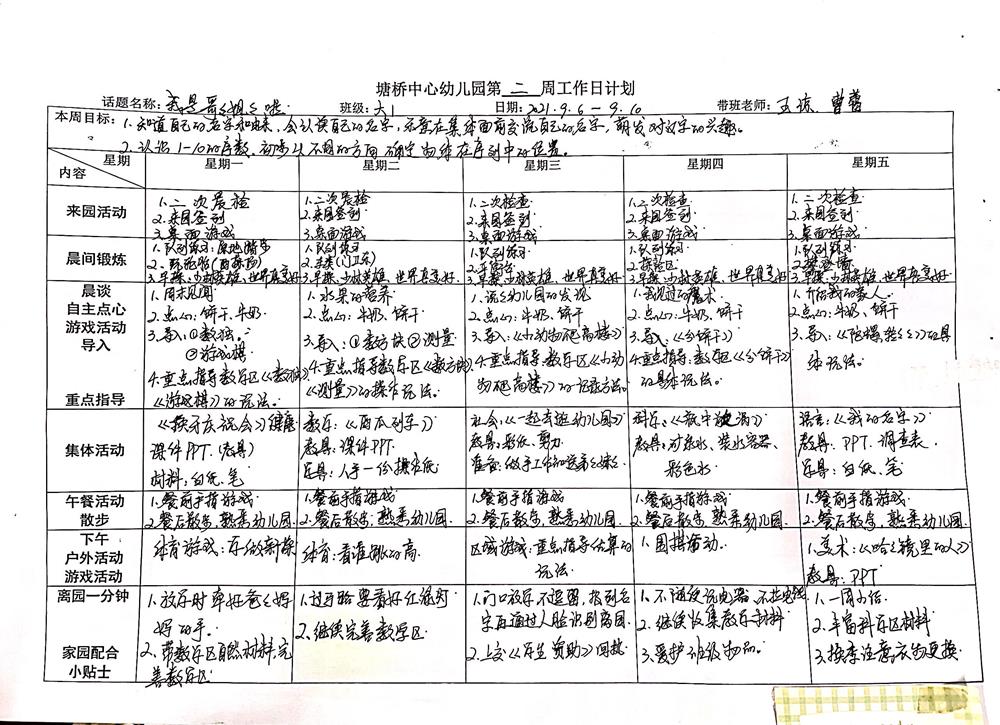 塘桥中心幼儿园第 二 周工作日计划
话题名称: 我是哥哥姐姐啦 班级: 大1 日期: 2021.9.6-9.10 带班老师: 王琼 曹蕾
本周目标: 1.知道自己的名字和由来,会认读自己的名字,乐意在集体面前交流自己的名字,萌发对汉字的兴趣。
2.认识1-10的序数,初步从不同的方向确定物体在序列中的位置。
星期 内容 星期一 星期二 星期三 星期四 星期五
来园活动
1.二次晨检
2.来园签到
3.桌面游戏
1.二次晨检
2.来园签到
3.桌面游戏
1.二次检查
2.来园签到
3.桌面游戏
1.二次检查
2.来园签到
3.桌面游戏
1.二次检查
2.来园签到
3.桌面游戏
晨间锻炼
1.队列练习:原地踏步
3.早操:少林英雄、世界真美好
1.队列练习
3.早操:少林英雄、世界真美好
1.队列练习
3.早操:少林英雄、世界真美好
1.队列练习
3.早操:少林英雄、世界真美好
1.队列练习
3.早操:少林英雄、世界真美好
晨谈
自主点心
游戏活动
导入
重点指导
1.周末见闻
2.点心:饼干、牛奶
3.导入:①数独。
②游戏棋
4.重点指导数学区《数独》
《游戏棋》的玩法。
1.水果的营养
2.点心:牛奶、饼干
3.导入:①数方块②测量
4.重点指导数学区《数方块》
《测量》的操作玩法。
1.说说幼儿园的发现
2.点心:牛奶、饼干
3.导入:《小动物砌高楼》
4.重点指导数学区《小动
物砌高楼》的记录方法。
1.我见过的魔术
2.点心:牛奶、饼干
3.导入:《分饼干》
4.重点指导数学区《分饼干》
的具体玩法。
1.介绍我的家人。
2.点心:牛奶、饼干
3.导入:《陀螺转转》的具
体玩法。
集体活动
《换牙庆祝会》健康
课件PPT(教具)
材料:白纸、笔
数学:《西瓜列车》
教具:课件PPT
学具:人手一份操作纸
社会:《一起逛逛幼儿园》
教具:彩纸、剪刀
科学:
教具:对应水、装水容器、
彩色水
语言:《我的名字》
教具:PPT、调查表
学具:白纸、笔
午餐活动
散步
1.餐前手指游戏
2.餐后散步,熟悉幼儿园
1.餐前手指游戏
2.餐后散步,熟悉幼儿园
1.餐前手指游戏
2.餐后散步,熟悉幼儿园
1.餐前手指游戏
2.餐后散步,熟悉幼儿园
1.餐前手指游戏
2.餐后散步,熟悉幼儿园
下午
户外活动
游戏活动
体育游戏:学做新操
体育:看谁挪的高
区域游戏:重点指导估算的
玩法
1.围棋活动
1.美术:《哈哈镜里的人》
教具:PPT
离园一分钟
家园配合
小贴士
1.放学时牵好爸爸妈
妈的手。
2.带数学区自然材料,完
善数学区
1.过马路要看好红绿灯
2.继续完善数学区
1.门口放学不逗留,报到名
字再通过人脸识别离园
2.上交《学生资助》回执
1.不随便玩电器、不拉电线
2.继续收集数学材料
3.爱护班级物品。
1.一周小结
2.丰富科学区材料
3.按季注意衣物更换